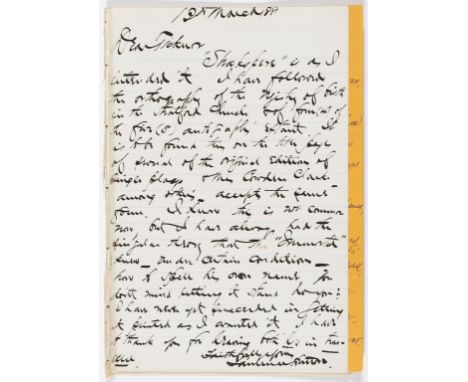 12th March 1881
Dear Ticknor
"Shakspere" is as I
intended it I have followed
the orthography of the registry of birth
in the Stratford Church and four of
the five autographs extant. It
is to be found thus on the title page
of several of the original Editions of
single plays other Cowden Clarke
among others accepts the same
form. I know this is not common
now, but I have always had the
singular theory that the "Immortal"
knew under certain conditions
how to spell his own name You
don't mind letting it stand do you?
I have never yet succeeded in getting
it printed as I wanted it I have
to thank you for having both
Faithfully yours
Laurence Hutton